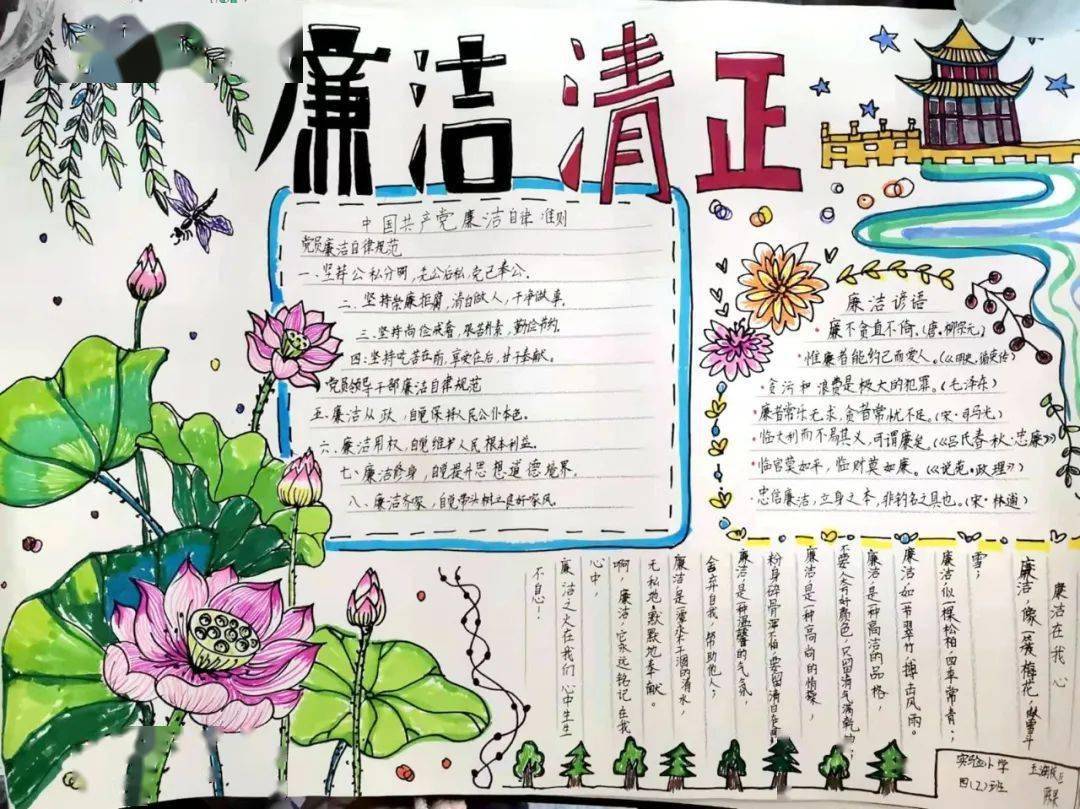 廉洁清正
中国共产党廉洁自律准则
党员廉洁自律规范
一、坚持公私分明，先公后私，克己奉公。
二、坚持崇廉拒腐，清白做人，干净做事。
三、坚持尚俭戒奢，艰苦朴素，勤俭节约。
四：坚持吃苦在前，享受在后，甘于奉献。
党员领导干部廉洁自律规范
五、廉洁从政，自觉保持人民公仆本色。
六、廉洁用权，自觉维护人民根本利益。
七、廉洁修身，自觉提升思想道德境界。
八、廉洁齐家，自觉带头树立良好家风。
廉洁谚语
廉不贪直不倚。（唐·柳宗元）
惟廉者能约己而爱人。
贪污和浪费是极大的犯罪。（毛泽东）
廉者常乐无求，贪者常忧不足。（宋·司马光）
临大利而不易其义，可谓廉矣。（《吕氏春秋·忠廉》）
临官莫如平，临财莫如廉。（《说苑·政理》）
忠信廉洁，立身之本，非钓名之具也。（宋·林逋）
廉洁在我心
廉洁，像一簇梅花，傲雪斗
雪；
廉洁似一棵松柏，四季常青；
廉洁如一节翠竹，搏击风雨。
廉洁，是一种高洁的品格，
不要人夸好颜色，只留清气满乾坤
廉洁是一种高尚的情操，
粉身碎骨浑不怕，要留清白在
廉洁是一种温馨的气氛，
舍弃自我，帮助他人；
廉洁是一潭永不涸的清水，
无私地，默默地奉献。
啊，廉洁，它永远铭记在我
心中，
廉洁之火在我们心中生生
不息！
实验小学
四（2）班